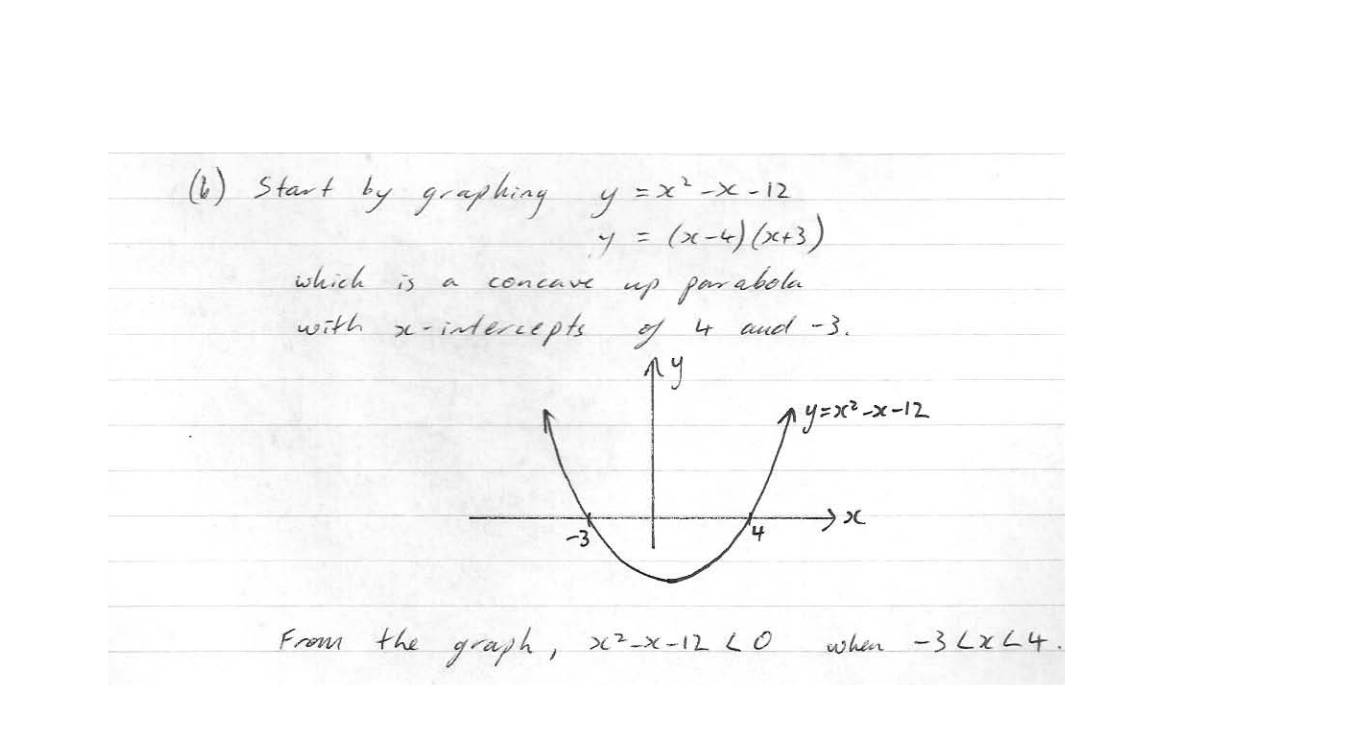 (b) Start by graphing y = x² - x - 12
y = (x-4)(x+3)
which is a concave up parabola
with x-intercepts of 4 and -3.
y
y=x²-x-12
x
-3
4
From the graph, x²-x-12 < 0 when -3 < x < 4.